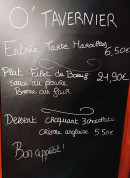 O' TAVERNIER
Entrée Tarte Maroilles
6,50€
Plat Filet de Boeuf 21,90€
sauce au poivre
Dessert Croquant 3 chocolats
crème anglaise 5.50€
Bon appétit!